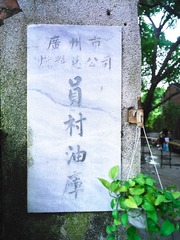 廣州市
燃料總公司
員村油庫